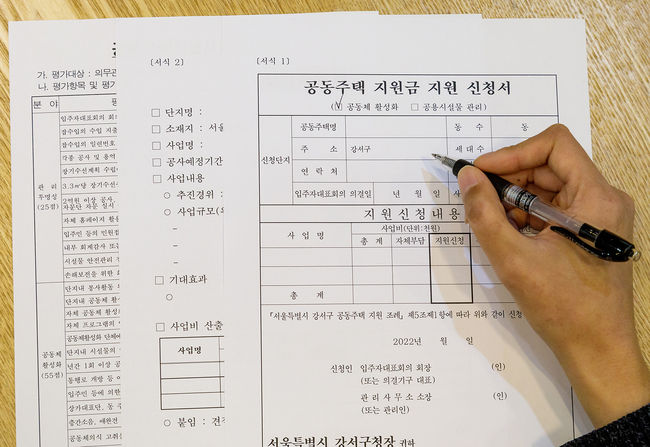 [서식 1]
공동주택 지원금 지원 신청서
(V 공동체 활성화 □ 공용시설물 관리)
신청단지
공동주택명
동 수 동
주 소 강서구 세 대 수
연 락 처
입주자대표회의 의결일 년 월 일
지 원 신 청 내 용
사 업 명
사업비(단위:천원)
총 계 자체부담 지원신청
총 계
「서울특별시 강서구 공동주택 지원 조례」제5조제1항에 따라 위와 같이 신청
2022년 월 일
신청인 입주자대표회의 회장 (인)
(또는 의결기구 대표)
관 리 사 무 소 소장 (인)
(또는 관리인)
서울특별시 강서구청장 귀하
[서식 2]
□ 단지명 :
□ 소재지 : 서울
□ 사업명 :
□ 공사예정기간
□ 사업내용
○ 추진경위 :
○ 사업규모(
-
-
-
□ 기대효과
○
□ 사업비 산출
사업명
○ 붙임 : 견
가. 평가대상 : 의무관
나. 평가항목 및 평가
분 야 평
관 리
투명성
(25점)
입주자대표회의 회
잡수입의 수입 지출
잡수입의 일련번호
각종 공사 및 용역
장기수선계획 수립
3.3㎡당 장기수선
2억원 이상 공사,
자문단 자문 실시
자체 홈페이지 활용
입주민 등의 민원접
내부 회계감사 또는
시설물 안전관리
손해보전을 위한
공동체
활성화
(55점)
단지내 봉사활동
단지내 공동체 활
자체 공동체 활성
자체 프로그램의
공동체활성화 단체
단지내 시설물의
년간 1회 이상 공
동행로 개방 등
입주민 등에 의한
상가대표단, 동
층간소음, 애완견
공동체의식 고취